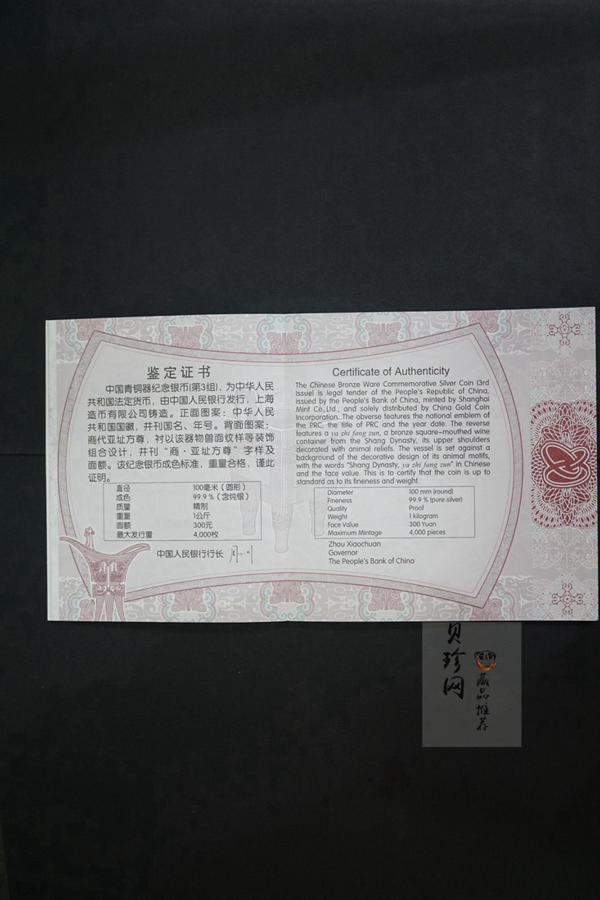 鉴定证书
中国青铜器纪念银币(第3组)，为中华人民
共和国法定货币，由中国人民银行发行，上海
造币有限公司铸造。正面图案：中华人民
共和国国徽，并刊国名、年号。背面图案：
商代亚址方尊，衬以该器物兽面纹样等装饰
组合设计，并刊“商·亚址方尊”字样及
面额。该纪念银币成色标准，重量合格，谨此
证明。
直径 100毫米（圆形）
成色 99.9％（含纯银）
质量 精制
重量 1公斤
面额 300元
最大发行量 4,000枚
中国人民银行行长
Certificate of Authenticity
The Chinese Bronze Ware Commemorative Silver Coin (3rd
Issue) is legal tender of the People's Republic of China,
issued by the People's Bank of China, minted by Shanghai
Mint Co.,Ltd., and solely distributed by China Gold Coin
Incorporation. The obverse features the national emblem of
the PRC, the title of PRC and the year date. The reverse
features a ya zhi fang zun, a bronze square-mouthed wine
container from the Shang Dynasty, its upper shoulders
decorated with animal reliefs. The vessel is set against a
background of the decorative design of its animal motifs,
with the words "Shang Dynasty, ya zhi fang zun" in Chinese
and the face value. This is to certify that the coin is up to
standard as to its fineness and weight.
Diameter 100 mm (round)
Fineness 99.9 % (pure silver)
Quality Proof
Weight 1 kilogram
Face Value 300 Yuan
Maximum Mintage 4,000 pieces
Zhou Xiaochuan
Governor
The People's Bank of China
贝珍网
藏品推荐